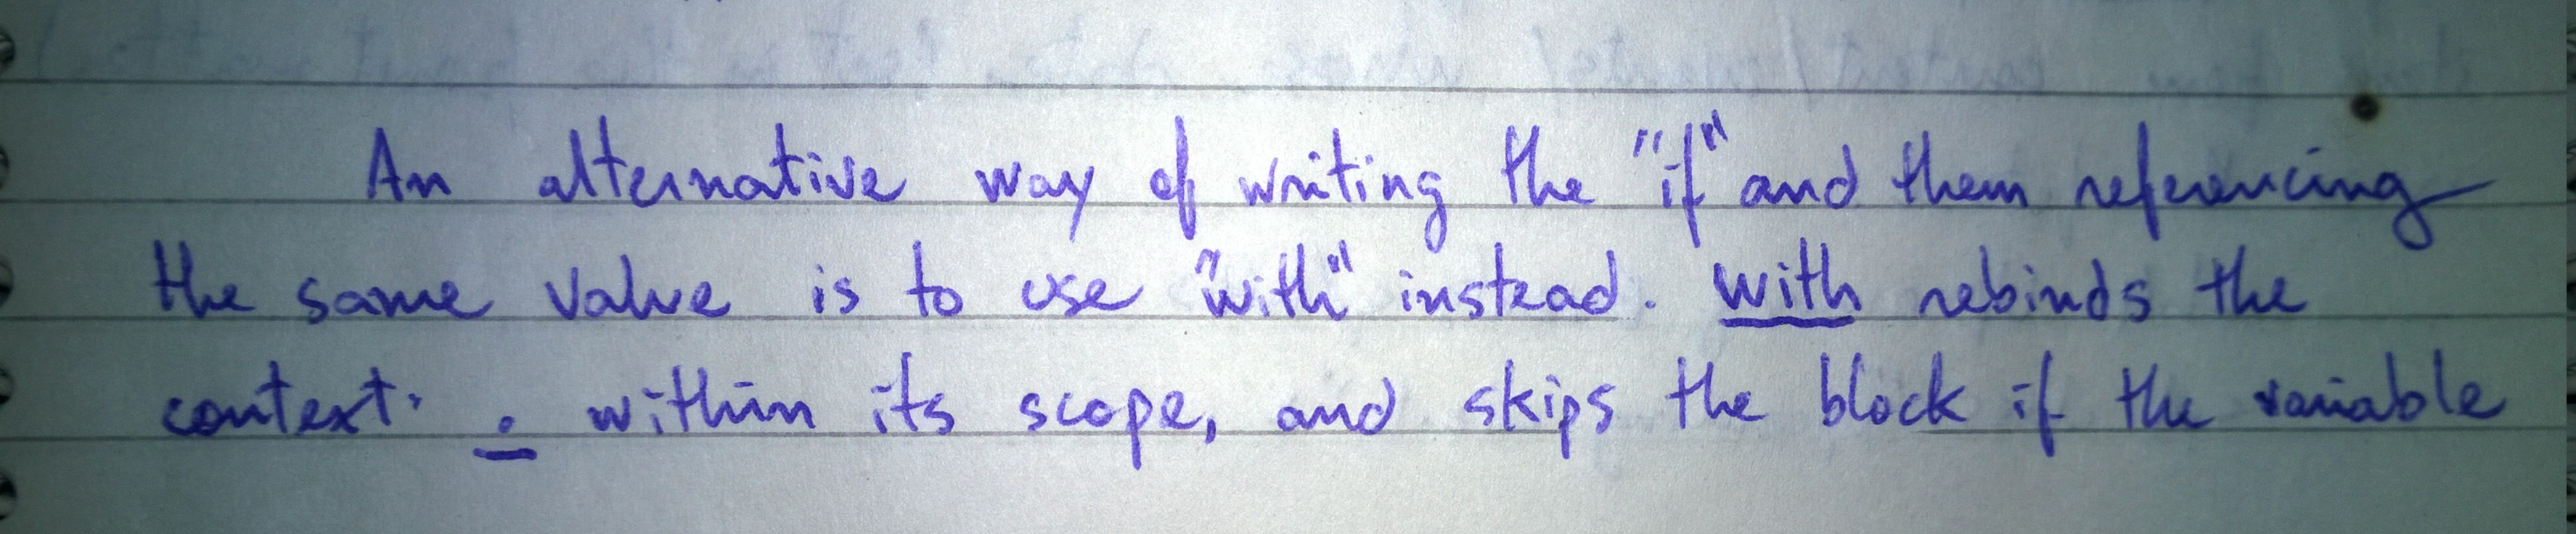 An alternative way of writing the "if" and then referencing
the same value is to use "with" instead. with rebinds the
context . within its scope, and skips the block if the variable